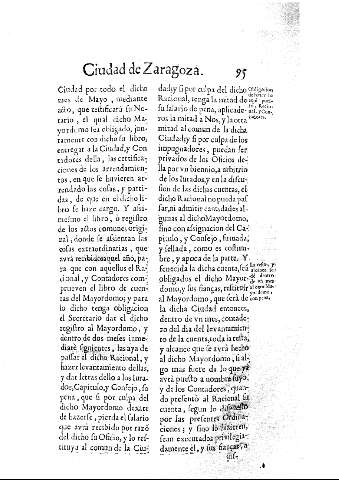 Ciudad de Zaragoza.
95
Ciudad por todo el dicho
mes de Mayo, mediante
acto, que testificarà su No-
tario, el qual dicho Ma-
yordomo sea obligado, jun-
tamente con dicho su libro,
entregar a la Ciudad, y Con-
tadores della, las certifica-
ciones de los arrendamien-
tos, en que se huvieren ar-
rendado las cosas, y parti-
das, de que en el dicho li-
bro se haze cargo. Y assi-
mesmo el libro, ò registro
de los actos comunes origi-
nal, donde se assientan las
cosas extraordinarias, que
avrà recibido aquel año, pa-
ra que con aquellos el Ra-
cional, y Contadores com-
prueven el libro de cuen-
tas del Mayordomo; y para
lo dicho tenga obligacion
el Secretario dar el dicho
registro al Mayordomo, y
dentro de dos meses inme-
diatè siguientes, las aya de
passar el dicho Racional, y
hazer levantamiento dellas,
y dar letras dello a los Jura-
dos, Capitulo, y Consejo, so
pena, que si por culpa del
dicho Mayordomo dexare
de hazerse, pierda el salario
que avrà recibido por razõ
del dicho su Oficio, y lo res-
tituya al comun de la Ciu-
dad; y si por culpa del dicho
Racional, tenga la mitad de
su salario de pena, aplicade-
ros la mitad à Nos, y la otra
mitad al comun de la dicha
Ciudad; y si por culpa de los
impugnadores, puedan ser
privados de los Oficios de-
lla por vn biennio, à arbitrio
de los Jurados, y en la discus-
sion de las dichas cuentas, el
dicho Racional no pueda pas
sar, ni admitir cantidades al-
gunas al dicho Mayordomo,
sino con assignacion del Ca-
pitulo, y Consejo, firmada,
y sellada, como es costum-
bre, y apoca de la parte. Y
fenecida la dicha cuenta, serà
obligados el dicho Mayor-
domo, y sus fianças, restituir
al Mayordomo, que serà de
la dicha Ciudad entonces,
dentro de vn mes, contade-
ro del dia del levantamien-
to de la cuenta, toda la resta,
y alcance que se avrà hecho
al dicho Mayordomo, si al-
go mas fuere de lo que yà
avrà puesto a nombre suyo,
y de los Contadores, quan-
do presentò al Racional su
cuenta, segun lo dispuesto
por las presentes Ordina-
ciones; y sino lo hizieren,
sean executados privilegia-
damente èl, y sus fianças, à